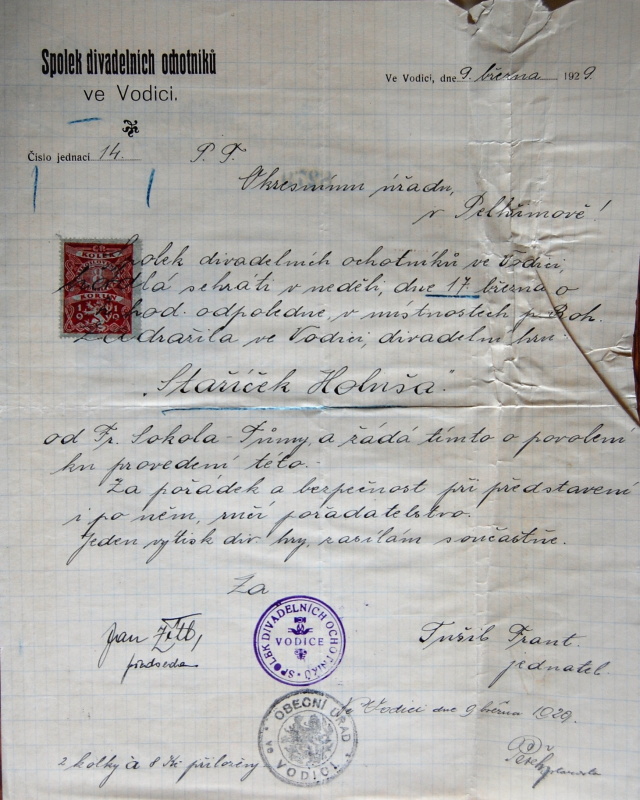 Spolek divadelních ochotníků
ve Vodici.
Ve Vodici, dne 9. března 1929.
Číslo jednací 14.
P. T.
Okresnímu úřadu,
v Pelhřimově!
Spolek divadelních ochotníků ve Vodici,
sehráti v neděli, dne 17 března o
hod. odpoledne, v místnostech p. Boh.
Zadražila ve Vodici, divadelní hru
„Staříček Holuša"
od Fr. Sokola-Tůmy, a žádá tímto o povolení
ku provedení této.-
Za pořádek a bezpečnost při představení
i po něm, ručí pořadatelstvo.
Jeden výtisk div. hry, zasílám současně.
Za
Jan
předseda
SPOLEK DIVADELNÍCH OCHOTNÍKŮ
VODICE
Tušil Frant.
jednatel.
OBECNÍ ÚŘAD
VE VODICI
Ve Vodici dne 9 března 1929
2 kolky à 8 Kč přiloženy